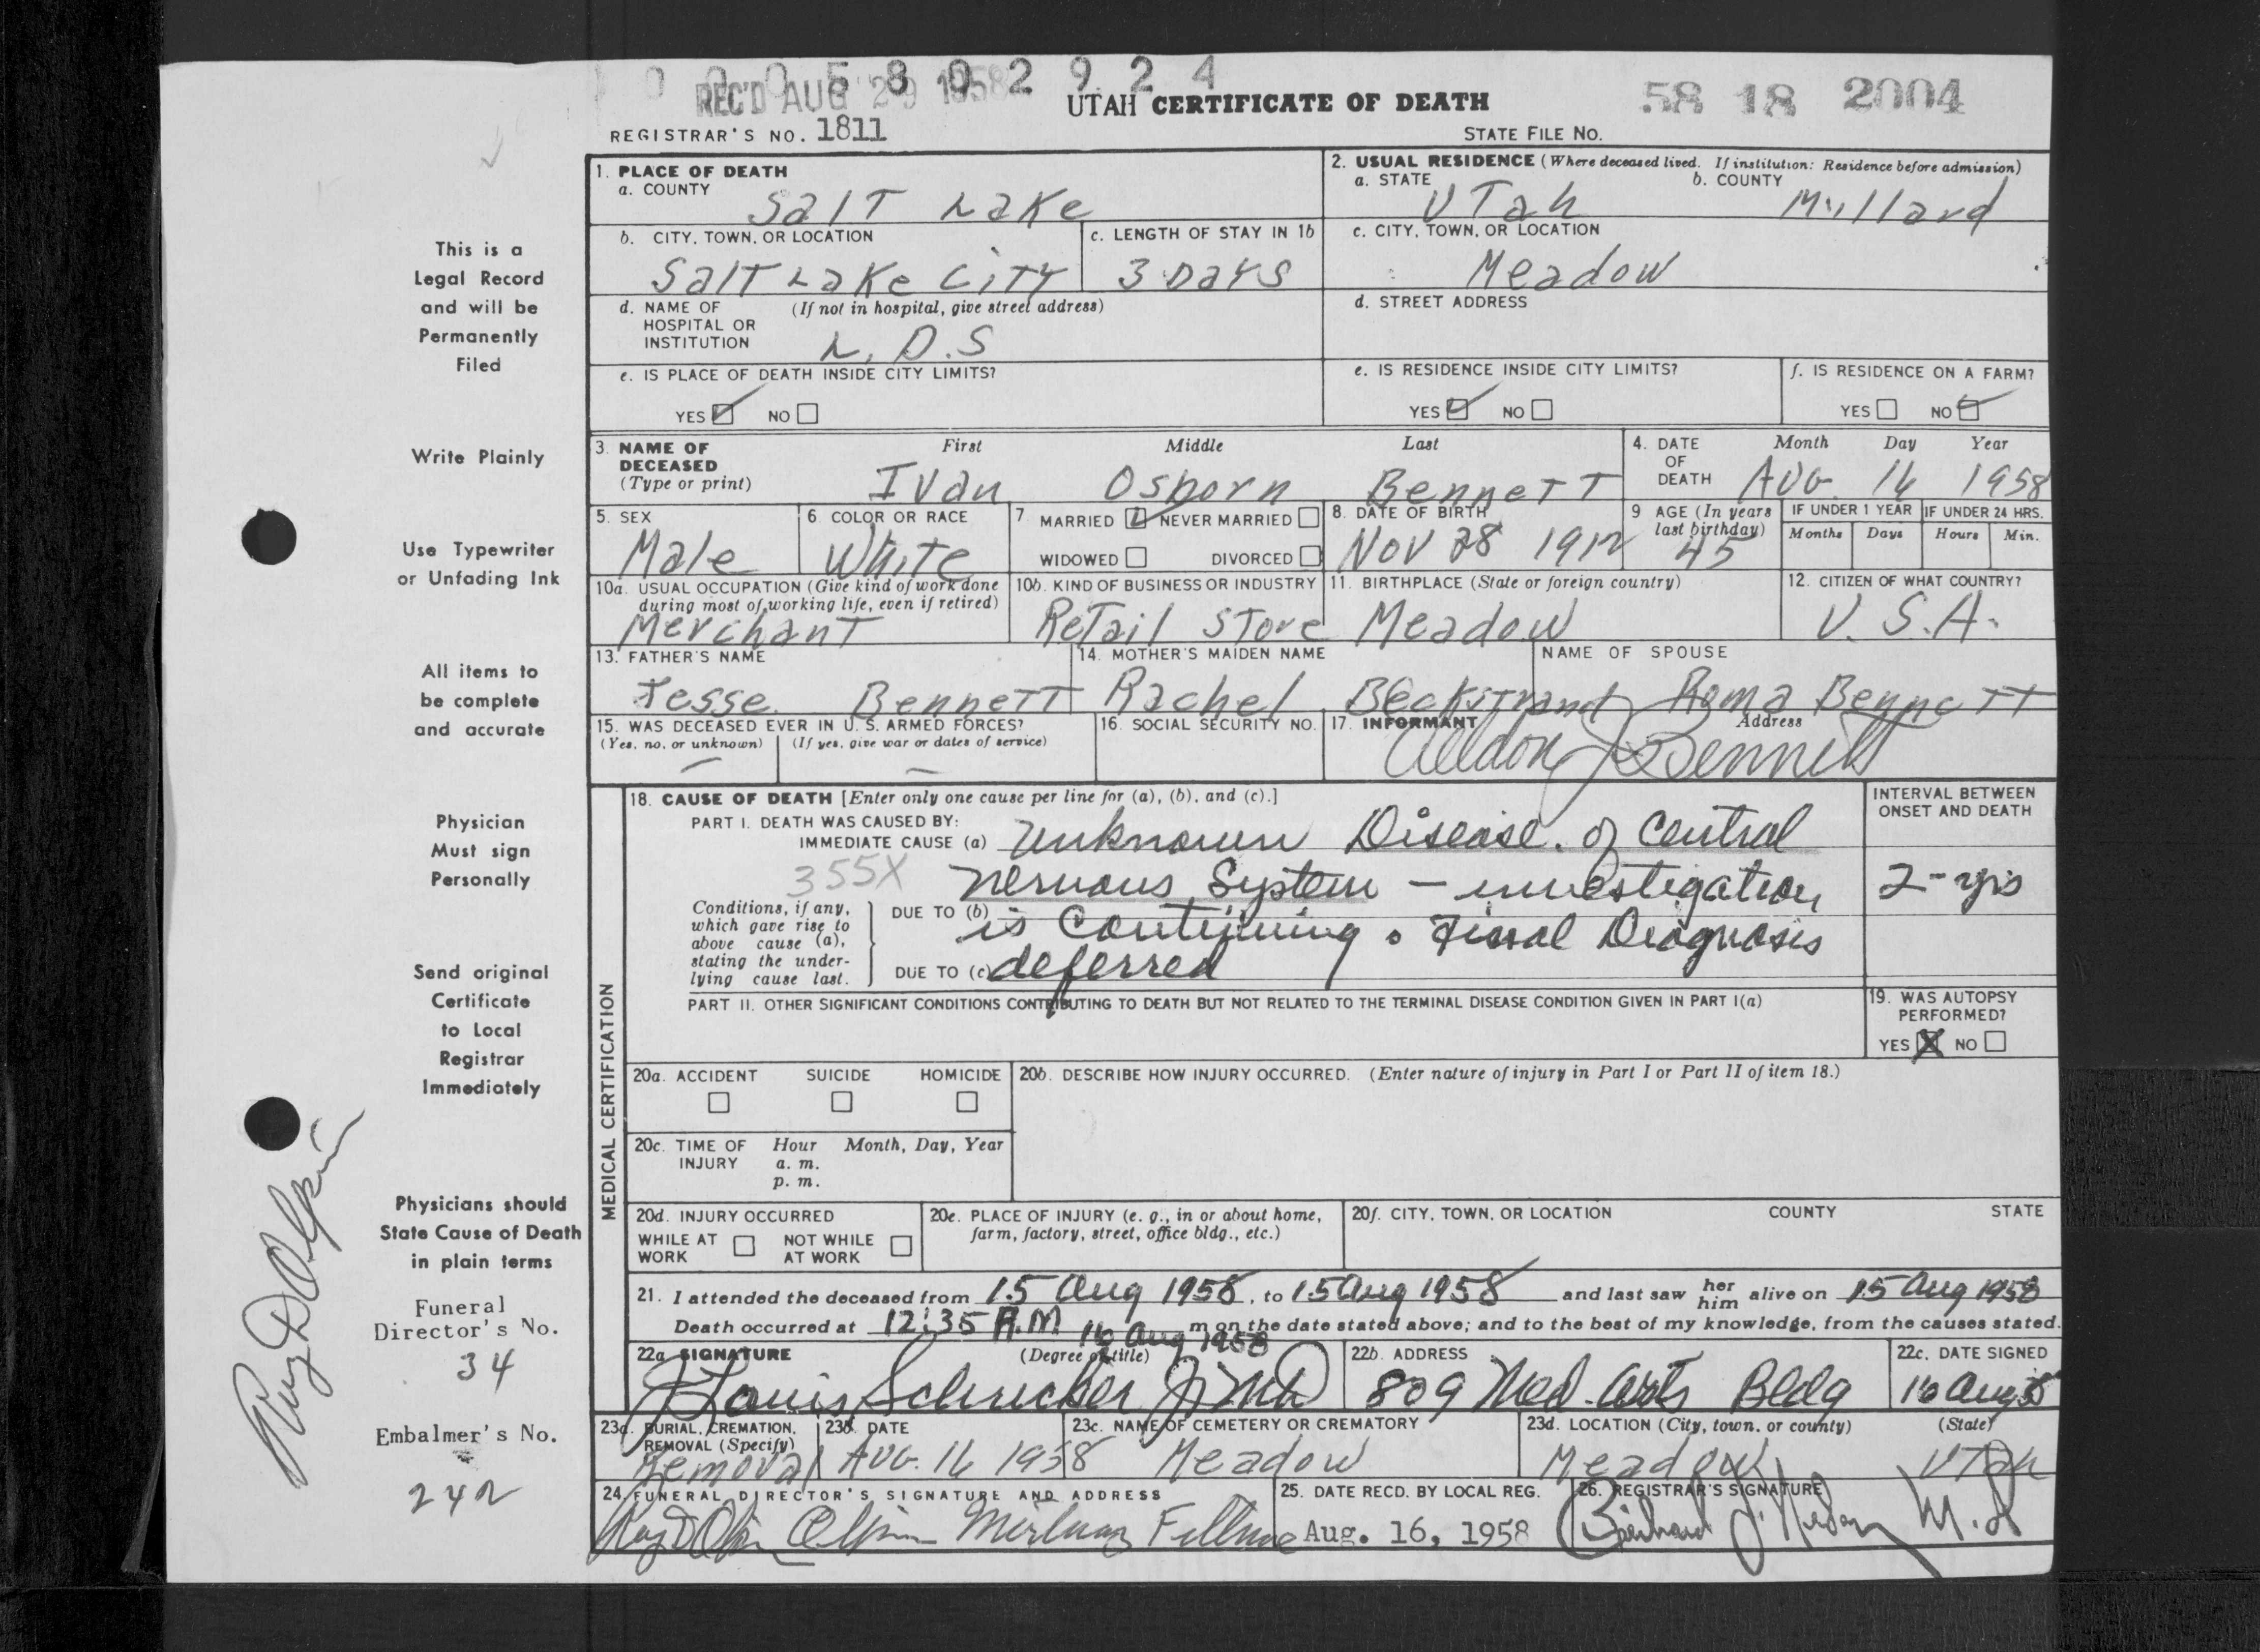 0 0 0 5 8 0 2 9 2 4
REC'D AUG 29 1958
UTAH CERTIFICATE OF DEATH
58 18 2004
REGISTRAR'S NO. 1811
STATE FILE NO.
1. PLACE OF DEATH
a. COUNTY
Salt Lake
2. USUAL RESIDENCE (Where deceased lived. If institution: Residence before admission)
a. STATE b. COUNTY
Utah Millard
b. CITY, TOWN, OR LOCATION
Salt Lake City
c. LENGTH OF STAY IN 1b
3 Days
c. CITY, TOWN, OR LOCATION
Meadow
d. NAME OF (If not in hospital, give street address)
HOSPITAL OR
INSTITUTION
L. D. S
d. STREET ADDRESS
e. IS PLACE OF DEATH INSIDE CITY LIMITS?
YES NO
e. IS RESIDENCE INSIDE CITY LIMITS?
YES NO
f. IS RESIDENCE ON A FARM?
YES NO
3. NAME OF DECEASED (Type or print)
First Middle Last
Ivan Osborn Bennett
4. DATE OF DEATH
Month Day Year
Aug. 16 1958
5. SEX
Male
6 COLOR OR RACE
White
7 MARRIED NEVER MARRIED
WIDOWED DIVORCED
8. DATE OF BIRTH
Nov 28 1912
9 AGE (In years last birthday)
45
IF UNDER 1 YEAR
Months Days
IF UNDER 24 HRS.
Hours Min.
10a. USUAL OCCUPATION (Give kind of work done
during most of working life, even if retired)
Merchant
10b. KIND OF BUSINESS OR INDUSTRY
Retail Store
11. BIRTHPLACE (State or foreign country)
Meadow
12. CITIZEN OF WHAT COUNTRY?
U. S. A.
13. FATHER'S NAME
Jesse Bennett
14. MOTHER'S MAIDEN NAME
Rachel Beckstrand
NAME OF SPOUSE
Roma Bennett
15. WAS DECEASED EVER IN U. S. ARMED FORCES?
(Yes, no, or unknown) (If yes, give war or dates of service)
— —
16. SOCIAL SECURITY NO.
17. INFORMANT Address
Bennett
MEDICAL CERTIFICATION
18. CAUSE OF DEATH [Enter only one cause per line for (a), (b), and (c).]
PART I. DEATH WAS CAUSED BY:
IMMEDIATE CAUSE (a) Unknown Disease. of Central
355X Nervous System - investigation
DUE TO (b) is Continuing. Final Diagnosis
DUE TO (c) deferred
Conditions, if any,
which gave rise to
above cause (a),
stating the under-
lying cause last.
INTERVAL BETWEEN
ONSET AND DEATH
2-yrs
PART II. OTHER SIGNIFICANT CONDITIONS CONTRIBUTING TO DEATH BUT NOT RELATED TO THE TERMINAL DISEASE CONDITION GIVEN IN PART I(a)
19. WAS AUTOPSY
PERFORMED?
YES X NO
20a. ACCIDENT SUICIDE HOMICIDE
20b. DESCRIBE HOW INJURY OCCURRED. (Enter nature of injury in Part I or Part II of item 18.)
20c. TIME OF INJURY
Hour Month, Day, Year
a. m.
p. m.
20d. INJURY OCCURRED
WHILE AT WORK NOT WHILE AT WORK
20e. PLACE OF INJURY (e. g., in or about home,
farm, factory, street, office bldg., etc.)
20f. CITY, TOWN, OR LOCATION COUNTY STATE
21. I attended the deceased from 15 Aug 1958, to 15 Aug 1958 and last saw her him alive on 15 Aug 1958
Death occurred at 12:35 A.M 16 Aug 1958 m on the date stated above; and to the best of my knowledge, from the causes stated.
22a SIGNATURE (Degree or title)
Louis Schricker Jr MD
22b. ADDRESS
809 Med. Arts Bldg
22c. DATE SIGNED
16 Aug 58
23a. BURIAL, CREMATION,
REMOVAL (Specify)
Removal
23b. DATE
Aug. 16 1958
23c. NAME OF CEMETERY OR CREMATORY
Meadow
23d. LOCATION (City, town, or county) (State)
Meadow Utah
24. FUNERAL DIRECTOR'S SIGNATURE AND ADDRESS
Ray D Olpin Olpin Mortuary Fillmore
25. DATE RECD. BY LOCAL REG.
Aug. 16, 1958
26. REGISTRAR'S SIGNATURE
M. D
This is a
Legal Record
and will be
Permanently
Filed
Write Plainly
Use Typewriter
or Unfading Ink
All items to
be complete
and accurate
Physician
Must sign
Personally
Send original
Certificate
to Local
Registrar
Immediately
Physicians should
State Cause of Death
in plain terms
Funeral
Director's No.
34
Embalmer's No.
242
Ray D Olpin